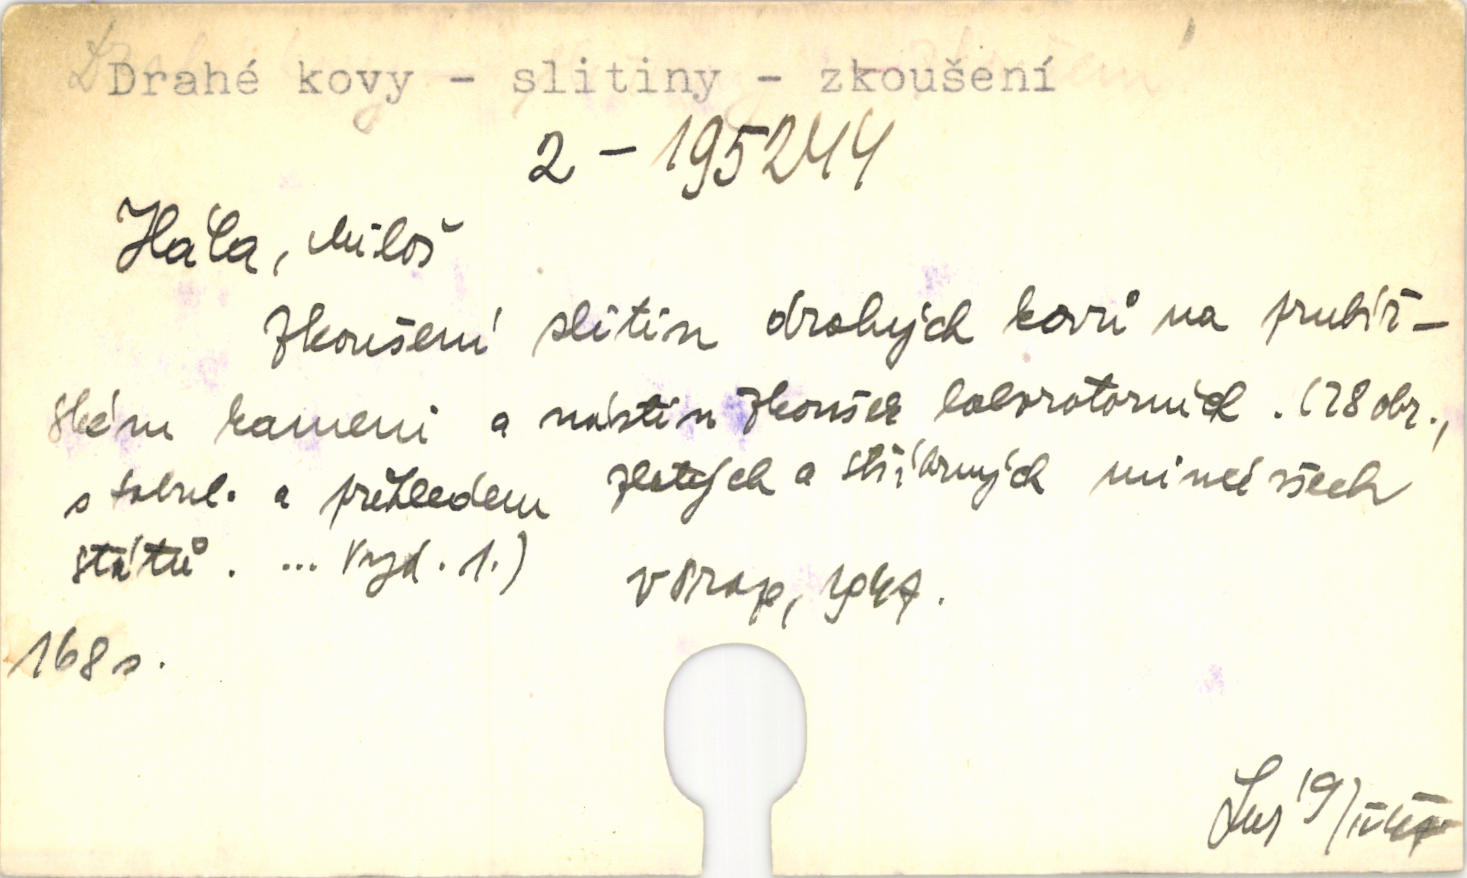 Drahé kovy - slitiny - zkoušení
2-195244
Hála, Miloš
Zkoušení slitin drahých kovů na prubíř-
ském kameni a nástin zkoušek laboratorních. (28 obr.,
s tabul. a přehledem zlatých a stříbrných mincí všech
států. ... Vyd. 1.)
V Praze, 1947.
168 s.